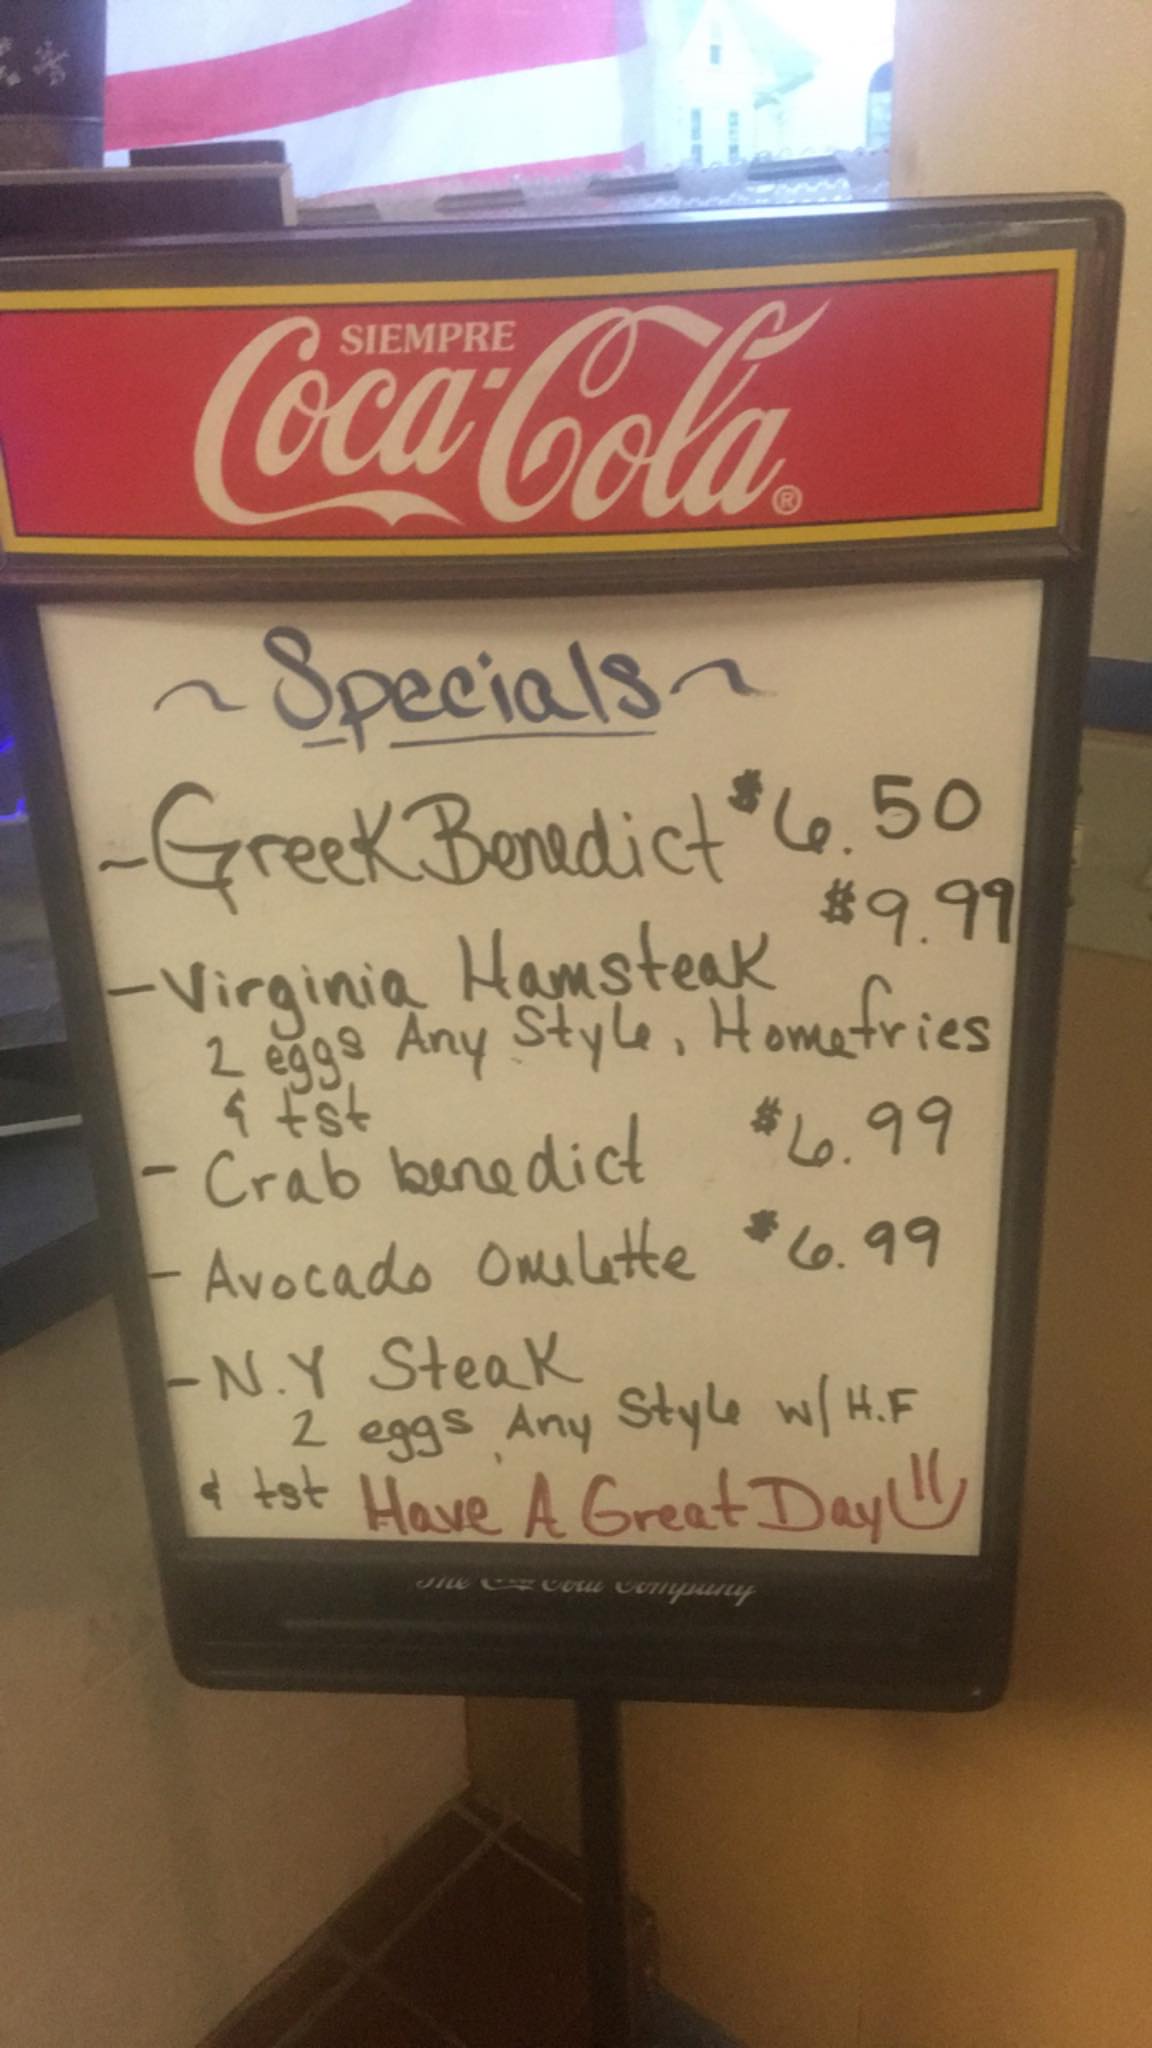 SIEMPRE
Coca-Cola®
~ Specials ~
~ Greek Benedict $6.50
$9.99
- Virginia Hamsteak
2 eggs Any Style, Homefries
& tst
- Crab benedict $6.99
- Avocado Omelette $6.99
- N.Y Steak
2 eggs Any Style w/ H.F
& tst Have A Great Day
The Coca-Cola Company